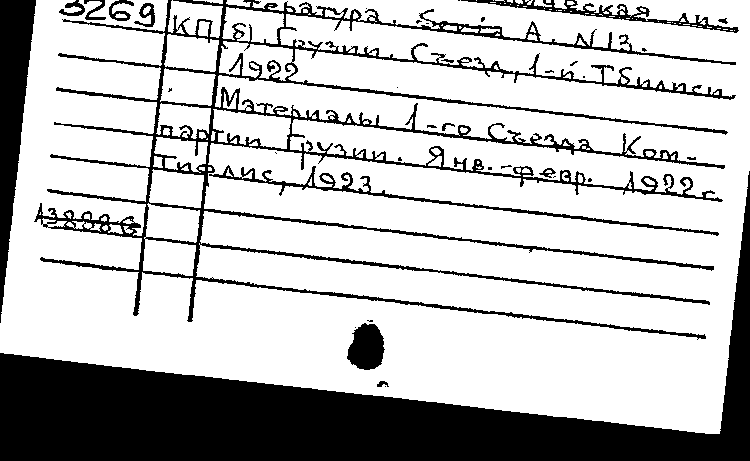 3269
тература. Seria A. N 13.
КП(б). Грузии. Съезд, 1-й. Тбилиси.
1922.
Материалы 1-го Съезда Ком-
партии Грузии. Янв.-февр. 1922 г.
Тифлис, 1923.